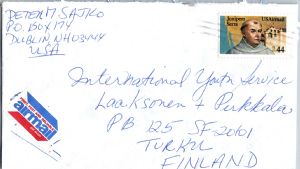 PETER M. SAJKO
P.O. BOX 174
DUBLIN, NH 03444
USA
Junipero Serra
USAirmail
44
International Youth Service
Laaksonen + Pirkkala
PB 125 SF-20101
TURKU
FINLAND
airmail